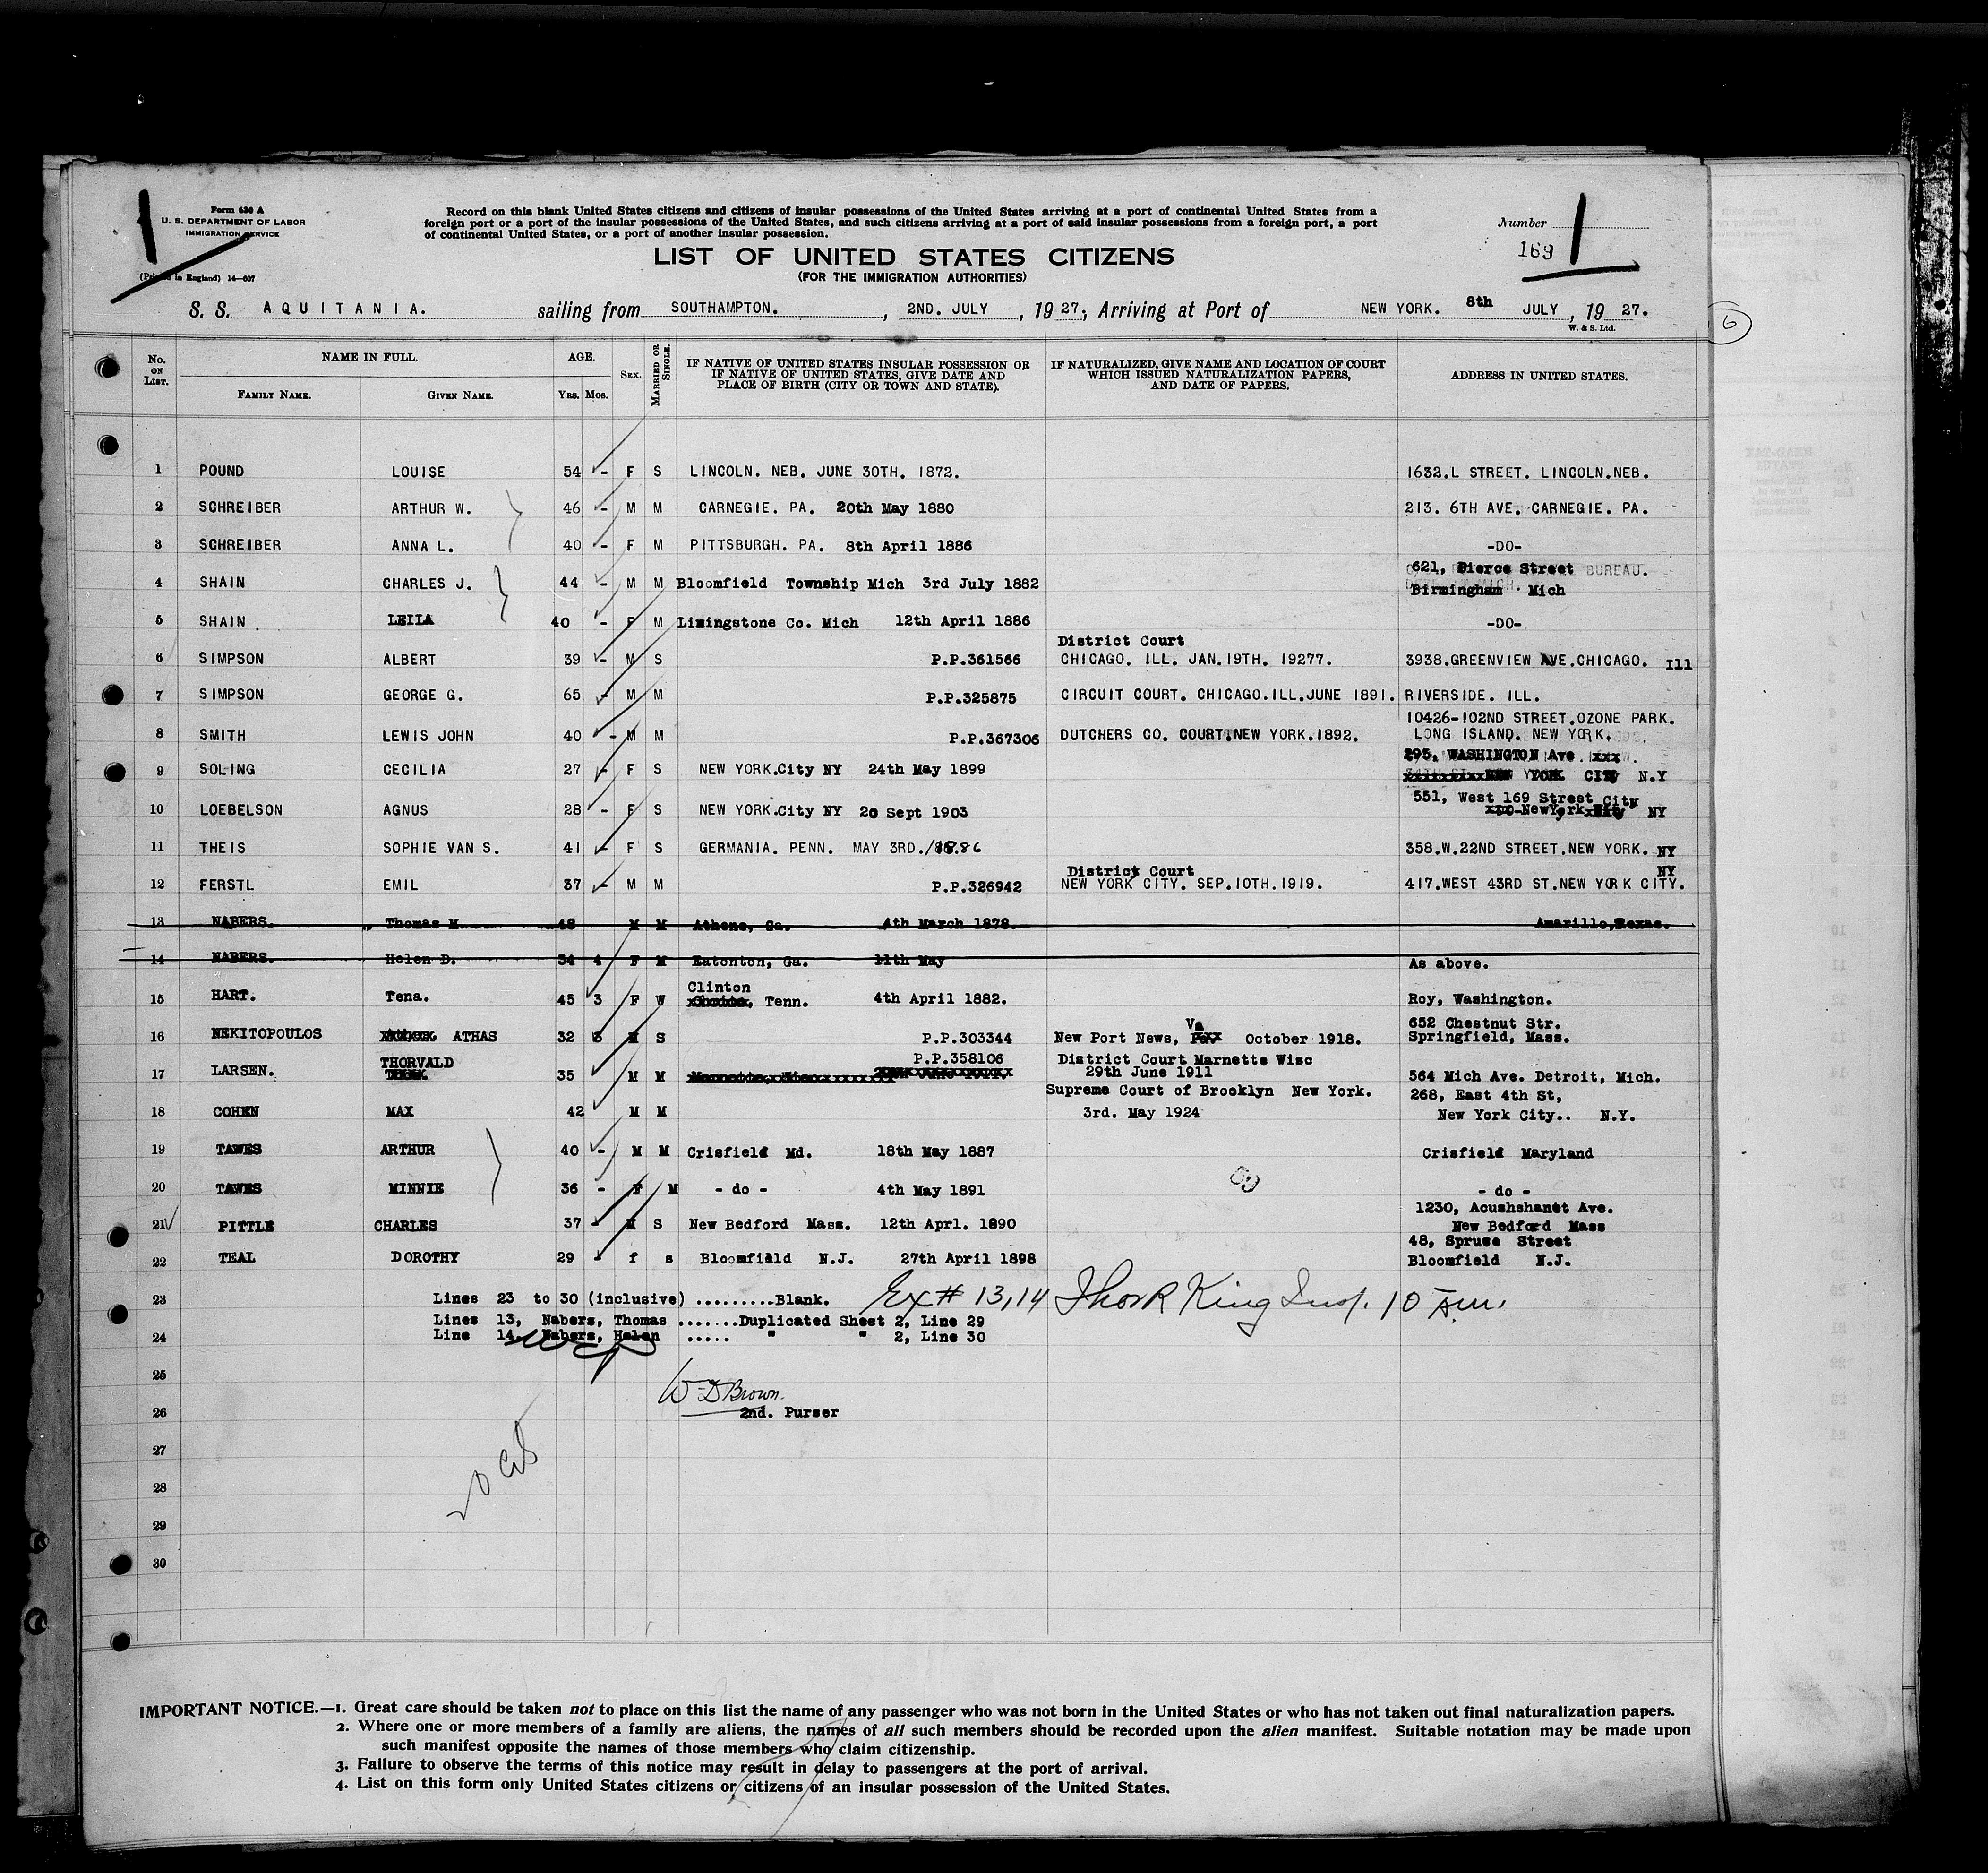 Form 630 A
U. S. DEPARTMENT OF LABOR
IMMIGRATION SERVICE
(Printed in England) 14—607
Record on this blank United States citizens and citizens of insular possessions of the United States arriving at a port of continental United States from a
foreign port or a port of the insular possessions of the United States, and such citizens arriving at a port of said insular possessions from a foreign port, a port
of continental United States, or a port of another insular possession.
Number 1
169
LIST OF UNITED STATES CITIZENS
(FOR THE IMMIGRATION AUTHORITIES)
S. S. AQUITANIA. sailing from SOUTHAMPTON. , 2ND. JULY , 19 27. , Arriving at Port of NEW YORK. 8th JULY , 19 27.
W. & S. Ltd.
6
No. ON LIST. NAME IN FULL. AGE. SEX. MARRIED OR SINGLE. IF NATIVE OF UNITED STATES INSULAR POSSESSION OR IF NATIVE OF UNITED STATES, GIVE DATE AND PLACE OF BIRTH (CITY OR TOWN AND STATE). IF NATURALIZED, GIVE NAME AND LOCATION OF COURT WHICH ISSUED NATURALIZATION PAPERS, AND DATE OF PAPERS. ADDRESS IN UNITED STATES.
FAMILY NAME. GIVEN NAME. YRS. MOS.
1 POUND LOUISE 54 - F S LINCOLN. NEB. JUNE 30TH. 1872. 1632.L STREET. LINCOLN.NEB.
2 SCHREIBER ARTHUR W. 46 - M M CARNEGIE. PA. 20th May 1880 213. 6TH AVE. CARNEGIE. PA.
3 SCHREIBER ANNA L. 40 - F M PITTSBURGH. PA. 8th April 1886 -DO-
4 SHAIN CHARLES J. 44 - M M Bloomfield Township Mich 3rd July 1882 621, Pierce Street BUREAU.
Birmingham Mich
5 SHAIN. LEILA 40 - F M Limingstone Co. Mich 12th April 1886 -DO-
District Court
6 SIMPSON ALBERT 39 - M S P.P.361566 CHICAGO. ILL. JAN.19TH. 19277. 3938.GREENVIEW AVE.CHICAGO. Ill
7 SIMPSON GEORGE G. 65 - M M P.P.325875 CIRCUIT COURT. CHICAGO.ILL.JUNE 1891. RIVERSIDE. ILL.
10426-102ND STREET.OZONE PARK.
8 SMITH LEWIS JOHN 40 - M M P.P.367306 DUTCHERS CO. COURT.NEW YORK.1892. LONG ISLAND. NEW YORK.
295, WASHINGTON Ave xxx
9 SOLING CECILIA 27 - F S NEW YORK.City NY 24th May 1899 NEW YORK CITY N.Y
551, West 169 Street City
10 LOEBELSON AGNUS 28 - F S NEW YORK.City NY 20 Sept 1903 NewYork NY
11 THEIS SOPHIE VAN S. 41 - F S GERMANIA. PENN. MAY 3RD. /1886 358.W.22ND STREET.NEW YORK. NY
District Court NY
12 FERSTL EMIL 37 - M M P.P.326942 NEW YORK CITY. SEP.10TH.1919. 417.WEST 43RD ST.NEW YORK CITY.
13 NABERS. Thomas M. 48 M M Athens, Ga. 4th March 1878. Amarillo,Texas.
14 NABERS. Helen D. 34 4 F M Eatonton, Ga. 11th May As above.
Clinton
15 HART. Tena. 45 3 F W Tenn. 4th April 1882. Roy, Washington.
Va 652 Chestnut Str.
16 NEKITOPOULOS ATHAS 32 3 M S P.P.303344 New Port News, October 1918. Springfield, Mass.
THORVALD P.P.358106 District Court Marnette Wisc
17 LARSEN. 35 M M 29th June 1911 564 Mich Ave. Detroit, Mich.
Supreme Court of Brooklyn New York. 268, East 4th St,
18 COHEN MAX 42 M M 3rd. May 1924 New York City.. N.Y.
19 TAWES ARTHUR 40 - M M Crisfield Md. 18th May 1887 Crisfield Maryland
20 TAWES MINNIE 36 - F M - do - 4th May 1891 - do -
1230, Acushshanet Ave.
21 PITTLE CHARLES 37 - M S New Bedford Mass. 12th Aprl. 1890 New Bedford Mass
48, Spruse Street
22 TEAL DOROTHY 29 - f s Bloomfield N.J. 27th April 1898 Bloomfield N.J.
23 Lines 23 to 30 (inclusive) .........Blank. Ex# 13,14 Thos R King Insp. 10 Am.
Lines 13, Nabers, Thomas .......Duplicated Sheet 2, Line 29
24 Line 14. Nabers, Helen ..... " " 2, Line 30
25
W D Brown.
26 2nd. Purser
27
28
29
30
IMPORTANT NOTICE.—1. Great care should be taken not to place on this list the name of any passenger who was not born in the United States or who has not taken out final naturalization papers.
2. Where one or more members of a family are aliens, the names of all such members should be recorded upon the alien manifest. Suitable notation may be made upon
such manifest opposite the names of those members who claim citizenship.
3. Failure to observe the terms of this notice may result in delay to passengers at the port of arrival.
4. List on this form only United States citizens or citizens of an insular possession of the United States.